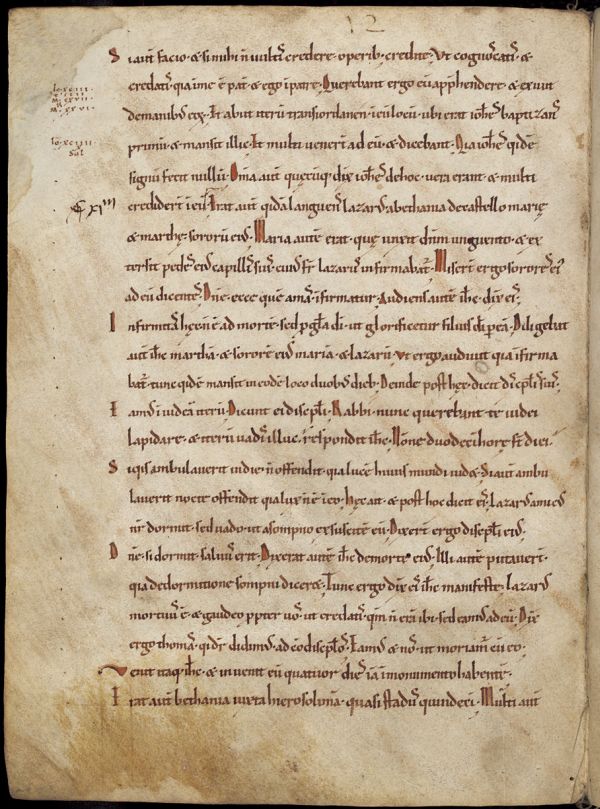 12
Si aut̄ facio & si mihi n̄ vultis credere operib; credite. Vt cognoscatis &
credatis quia in me ē pat̄ & ego ī patre. Querebant ergo eū apphendere & exiuit
de manib; eoȝ. Et abiit iterū trans iordanen ī eū locū ubi erat ioh̄s baptizans
primū & mansit illic. Et multi uener̄t ad eū & dicebant. Quia ioh̄s qidē
signū fecit nullū. Oīna aut̄ quęcūq dix̄ ioh̄s de hoc uera erant & multi
crediderr̄t ī eū. Erat aut̄ qidā languens lazarus a bethania de castello marię
& marthę sororū eius. Maria autē erat quę unxit dn̄m unguento & ex
tersit pedes eius capillis suis cuius fr̄ lazarus infirmabat̄. Miser̄t ergo sorores eius
ad eū dicentes. Dn̄e ecce quē amas ifirmatur. Audiens autē ih̄c dix̄ eis.
Infirmitas hęc n̄ ē ad mortē sed p glā di ut glorificetur filius di per eā. Diligebat
aut̄ ih̄c marthā & sororē eius mariā & lazarū. Vt ergo audiuit quia ifirma
bat̄ tunc qidē mansit in eodē loco duobus dieb. Deinde post hęc dicit discplis suis.
Eamus ī iudeā iterū. Dicunt ei discpli. Rabbi nunc querebant te iudei
lapidare & iterū uadis illuc. respondit ih̄c. Nonne duodeci hore st diei.
Siqis ambulauerit in die n̄ offendit quia lucē huius mundi uid&. Si aut̄ ambu
lauerit nocte offendit quia lux n̄ ē ī eo. Hęc ait & post hoc dicit eis. Lazarus amicus
nr̄ dormit sed uado ut a sompno exsuscitē eū. Dixer̄t ergo discpli eius.
Dn̄e si dormit saluus erit. Dixerat autē ih̄c de morte eius. Illi autē putauer̄t
quia de dormitione sompni diceret. Tunc ergo dix̄ eis ih̄c manifeste. Lazarus
mortuus ē & gaudeo ppter uos ut credatis qm̄ n̄ erā ibi sed eamus ad eū. Dix̄
ergo thomas qi dr̄ didimus ad cōdiscplos. Eamus & nos ut moriamur cū eo.
Uenit itaq ih̄c & inuenit eū quatuor dies iā ī monumento habentē.
Erat aut̄ bethania iuxta hierosolimā quasi stadiis quindeci. Multi aut̄